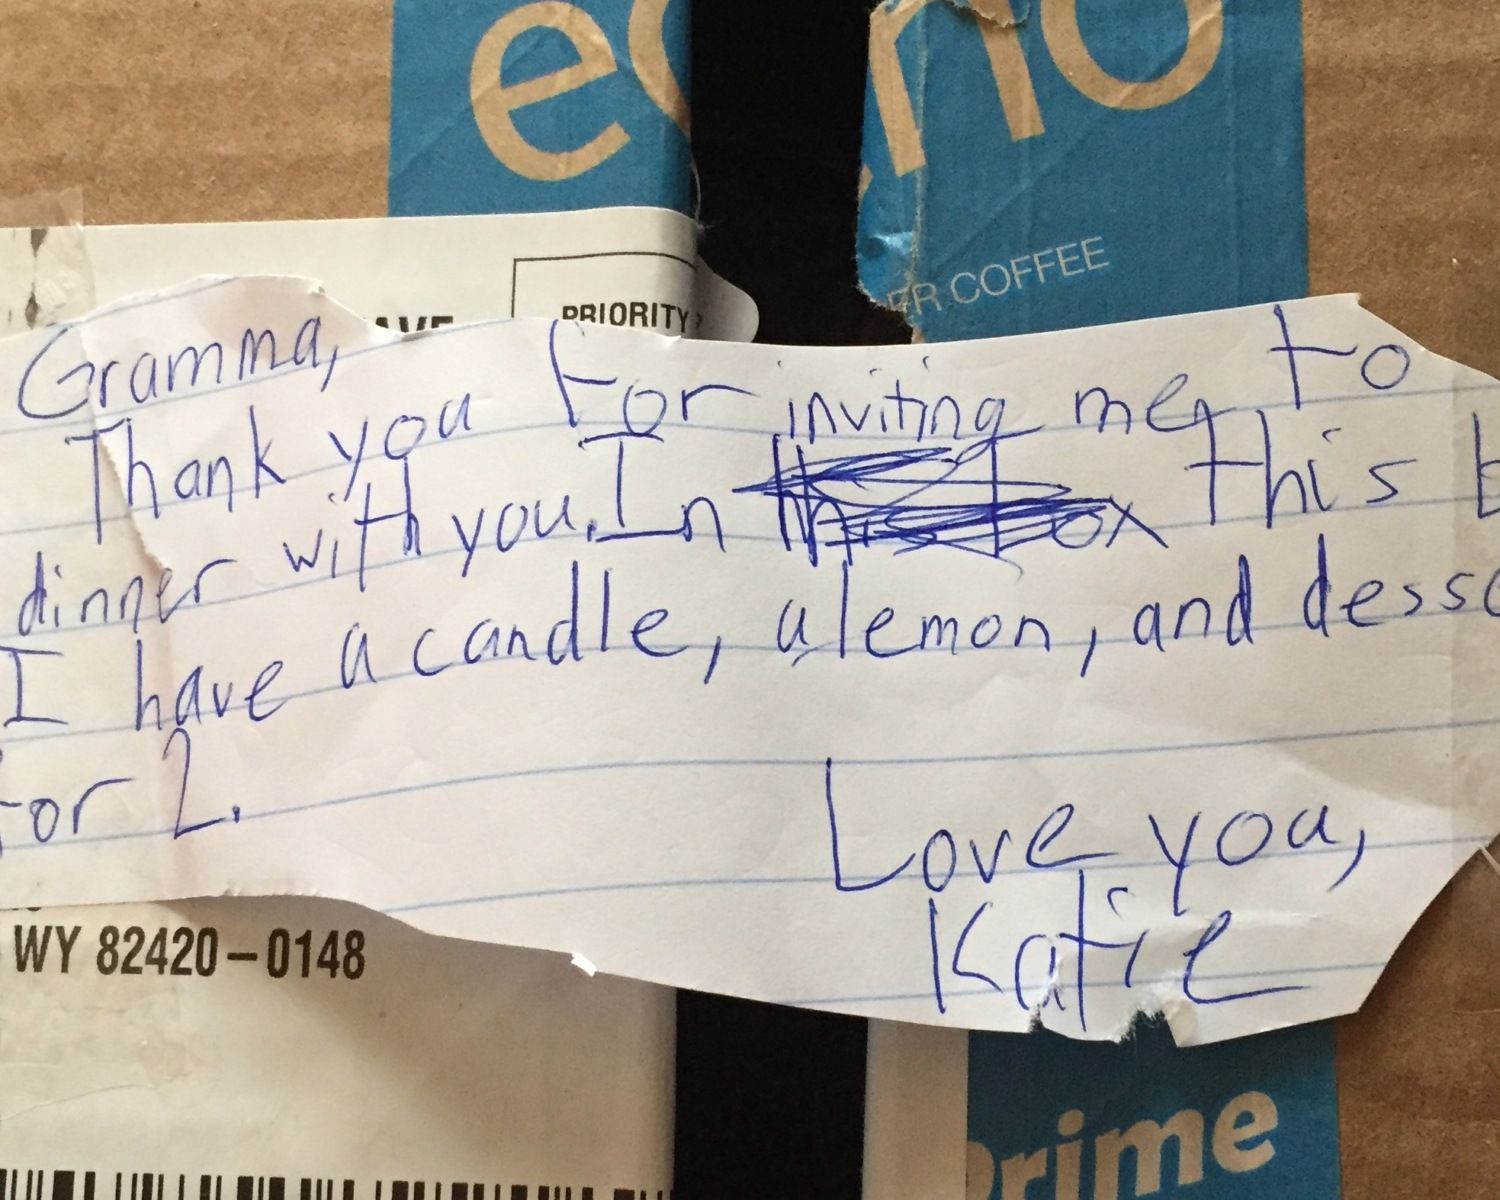 Gramma,
Thank you for inviting me to
dinner with you. In this
I have a candle, a lemon, and
for 2.
Love you,
Katie
PRIORITY
ER COFFEE
WY 82420-0148